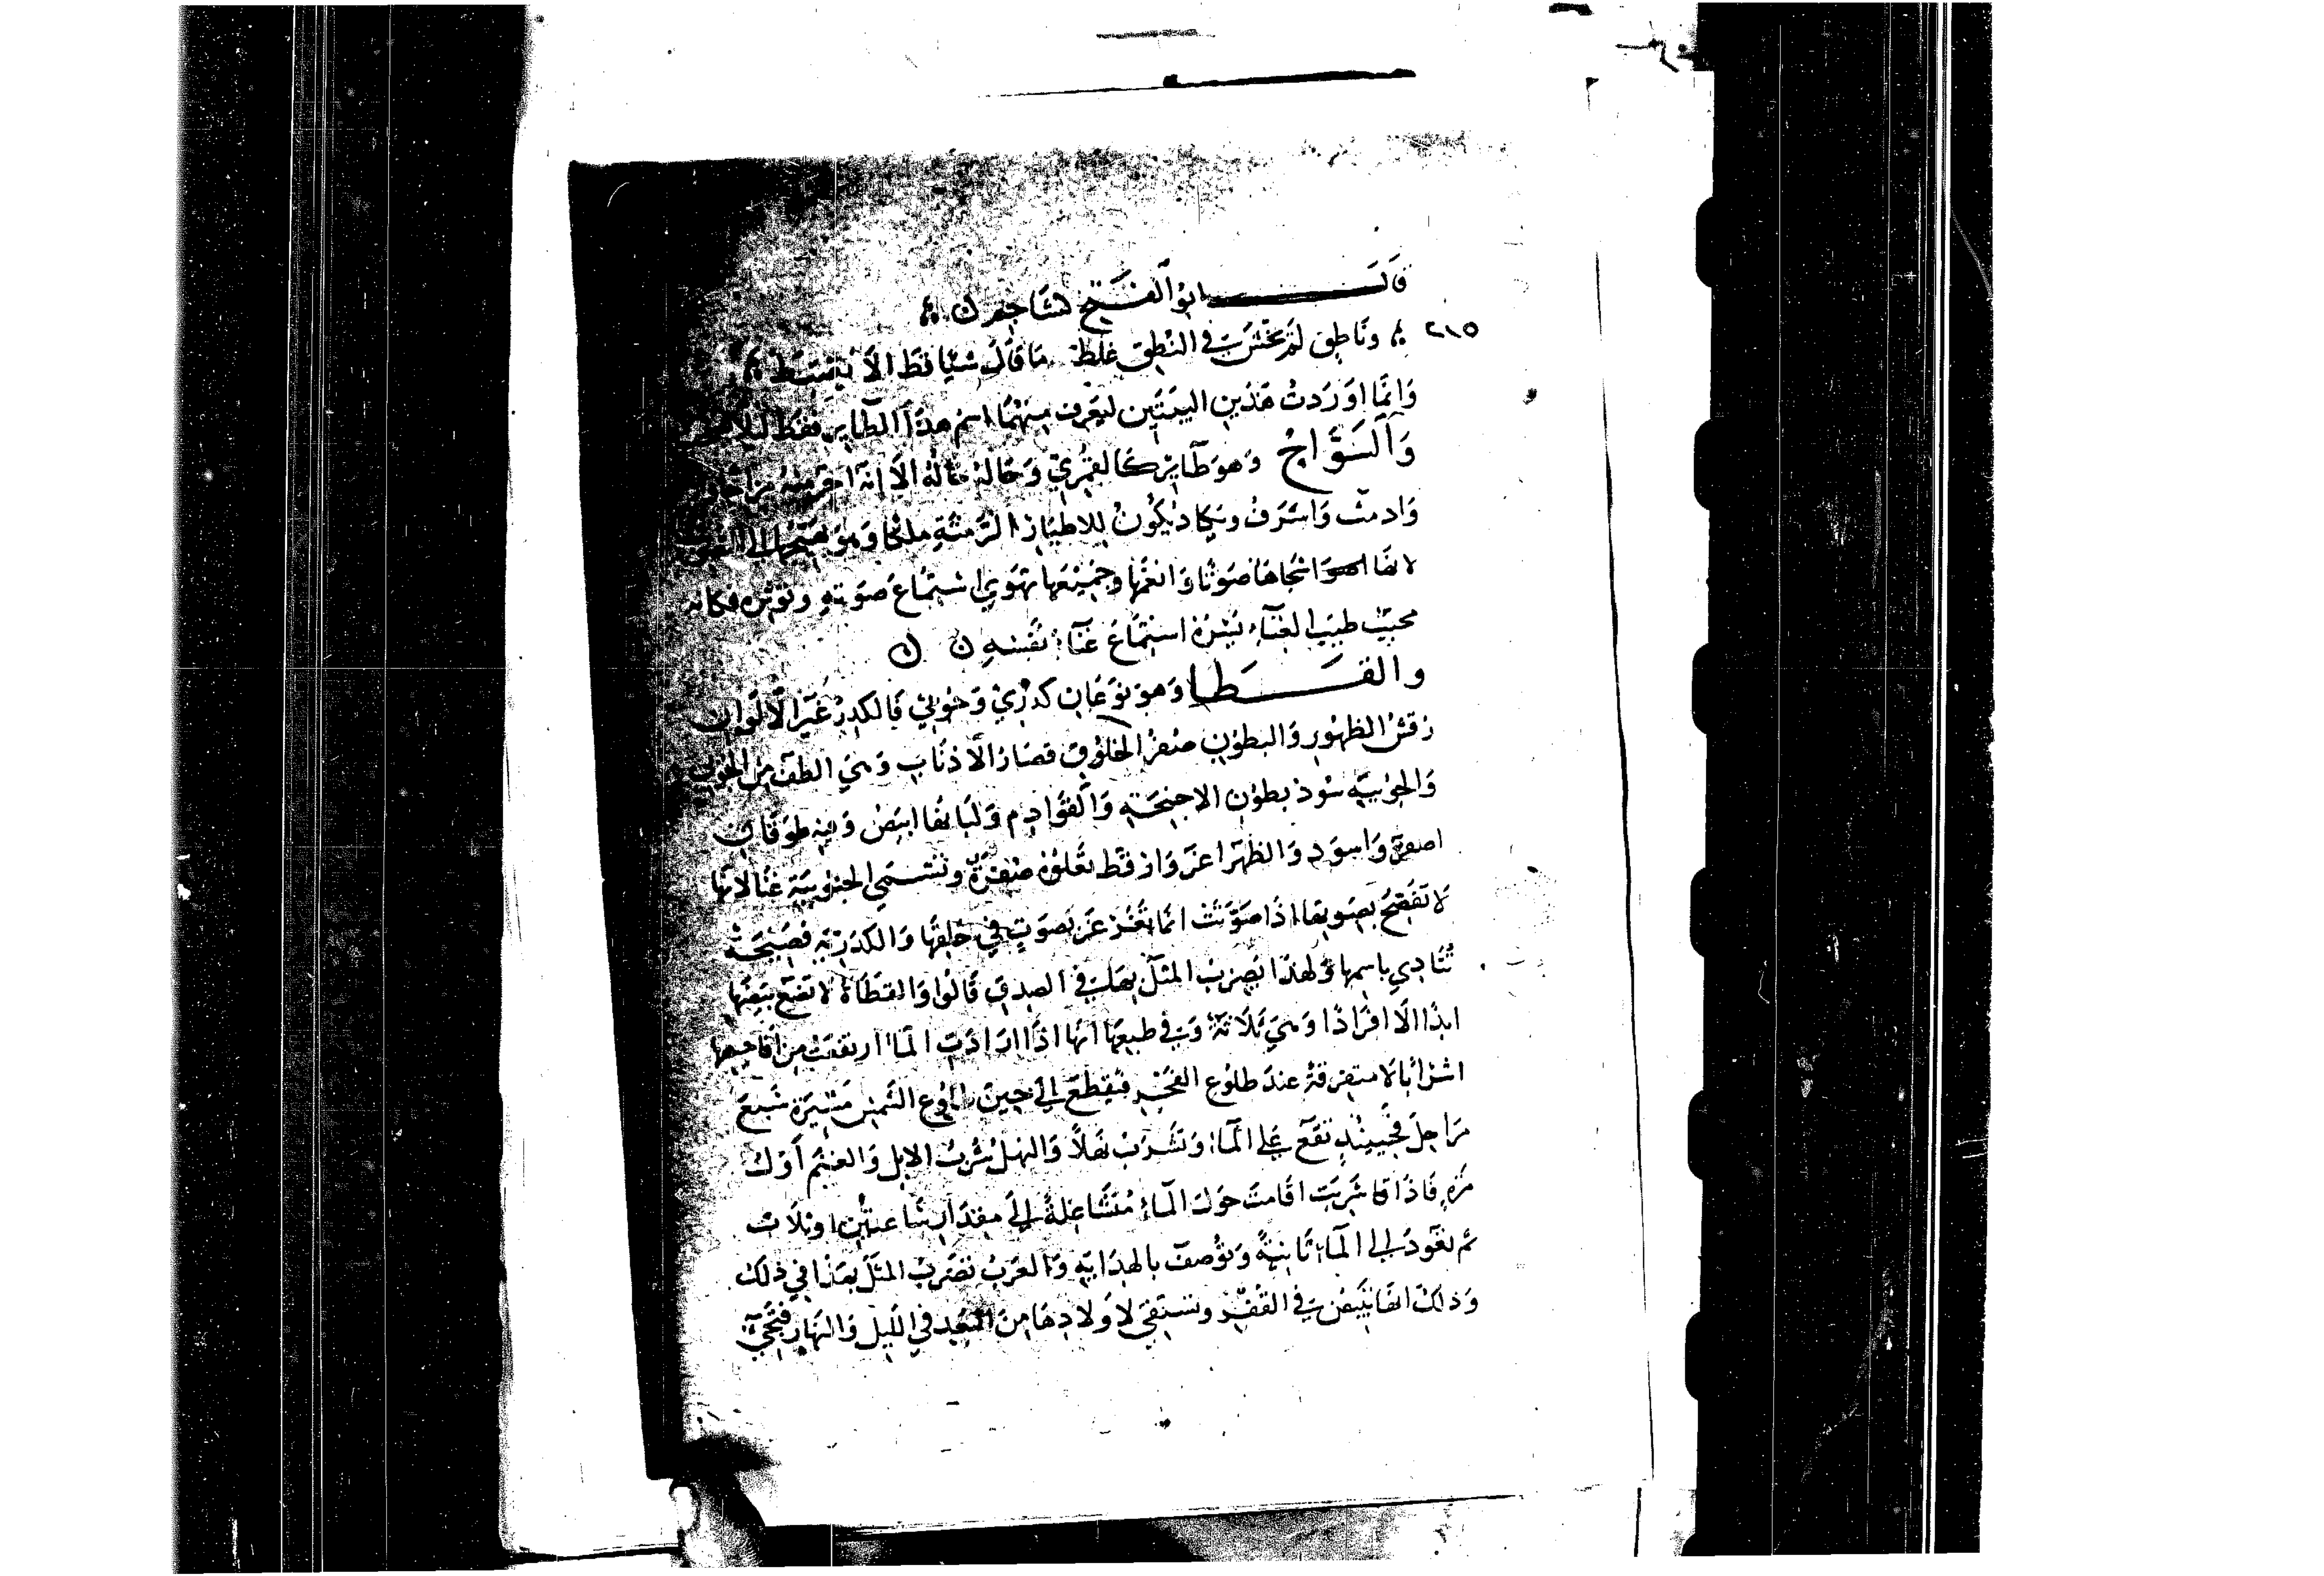 قال ابو الفتح كشاجم ن
٢١٥ وناطق لم يخش في النطق غلط ما قال شيا قط الا بنمط
وانما اوردت هذين البيتين ليعرف منهما اسم هذا الطاير فقط
والنواح وهو طاير كالقمري وحاله حاله الا انه احر منه مزاجا
وادمث واشرف ويكاد يكون للاطيار الدمثة ملكا وهو يهيجها الى
لانه اشجاها صوتا وانغمها وجميعها تهوي استماع صوته وتوثره فكانه
محب طيب الغناء يسره استماع غناء نفسه ن ن
والقطا وهو نوعان كدري وجوني فالكدر غبر الالوان
رقش الظهور والبطون صفر الحلوق قصار الاذناب وهي الطف من الجوني
والجونية سود بطون الاجنحة والقوادم ولبانها ابيض وفيه طوقان
اصفر واسود والظهر اغبر وارقط تعلوه صفرة وتسمي الجونية غتما لانها
لا تفصح بصوتها اذا صوتت انما تغرغر بصوت في حلقها والكدرية فصيحة
تنادي باسمها ولهذا يضرب المثل بها في الصدق قالوا والقطاة لا تضع بيضها
ابدا الا افرادا وهي ثلاثة وفي طبعها انها اذا ارادت الما ارتفعت من افاحيصها
اشرابا لا متفرقة عند طلوع الفجر فتقطع الي حين طلوع الشمس مسيرة سبع
مراحل فحينيذ تقع علي الماء وتشرب نهلا والنهل شرب الابل والغنم اول
مرة فاذا ما شربت اقامت حول الماء متشاغلة الي مقدار ساعتين او ثلاث
ثم تعود الي الماء ثانية وتوصف بالهداية والعرب تضرب المثل بها في ذلك
وذلك انها تبيض في القفر وتستقي لاولادها من البعد في الليل والنهار فتجيء